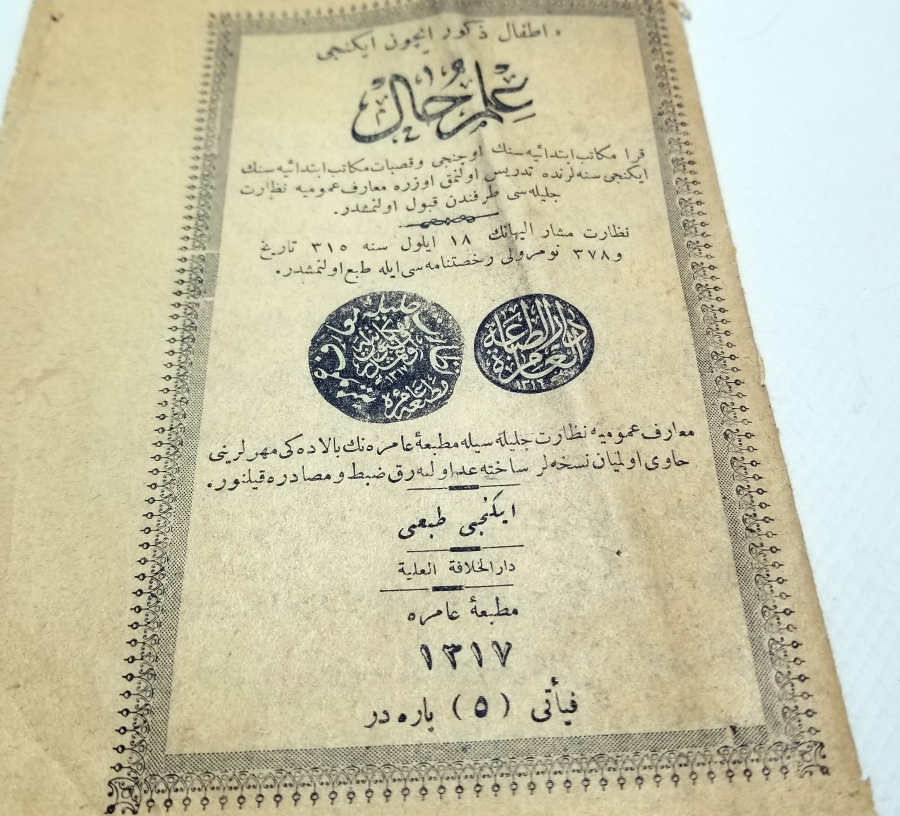 اطفال ذكور ايچون ايكنجى
علم حال
قرا مكاتب ابتدائيه سنك اوچنجى وقصبات مكاتب ابتدائيه سنك
ايكنجى سنه لرنده تدريس اولنمق اوزره معارف عموميه نظارت
جليله سى طرفندن قبول اولنمشدر.
نظارت مشار اليهانك ١٨ ايلول سنه ٣١٥ تاريخ
و ٣٧٨ نومرولى رخصتنامه سى ايله طبع اولنمشدر.
دار الطباعة العامرة
١٣١٦
معارف عموميه نظارت جليله سيله مطبعۀ عامره نك بالاده كى مهرلرينى
حاوى اولميان نسخه لر ساخته عد اولنه رق ضبط و مصادره قيلنور.
ايكنجى طبعى
دار الخلافة العلية
مطبعۀ عامره
١٣١٧
فيأتى (٥) پاره در